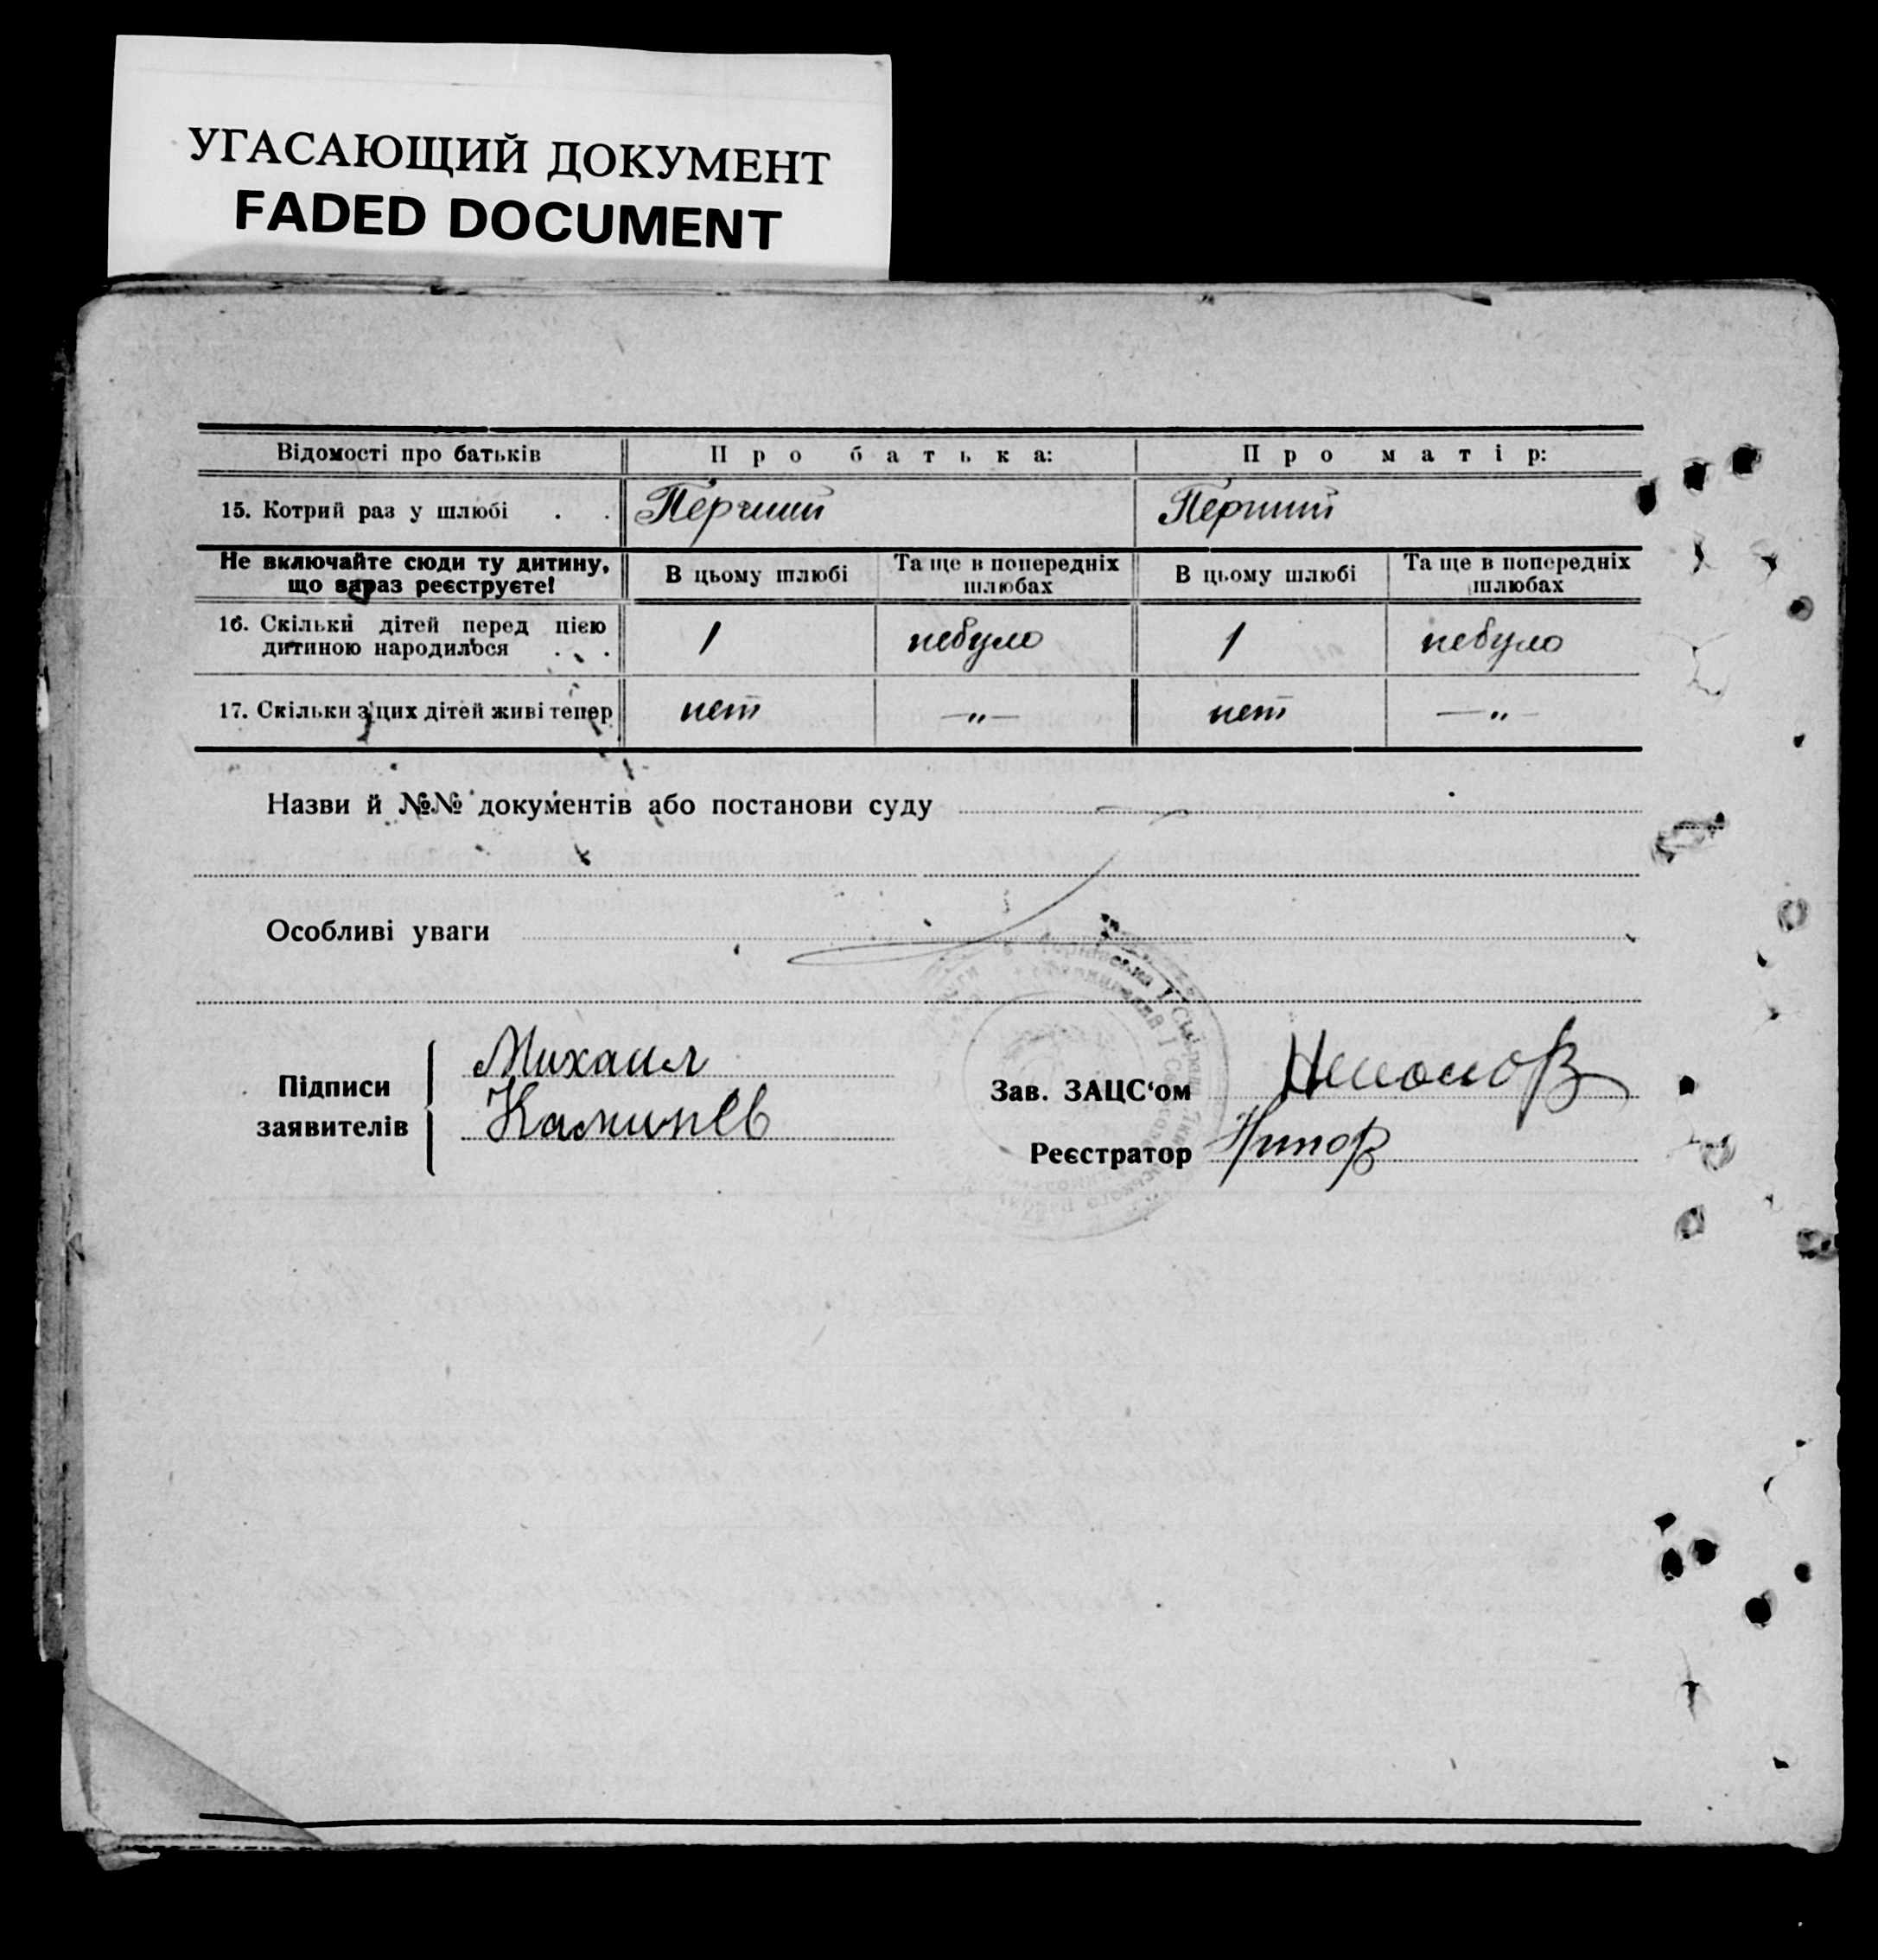 УГАСАЮЩИЙ ДОКУМЕНТ
FADED DOCUMENT
Відомості про батьків Про батька: Про матір:
15. Котрий раз у шлюбі . . Перший Перший
Не включайте сюди ту дитину, що зараз реєструєте! В цьому шлюбі Та ще в попередніх шлюбах В цьому шлюбі Та ще в попередніх шлюбах
16. Скільки дітей перед цією
дитиною народилося . . . 1 небуло 1 небуло
17. Скільки з цих дітей живі тепер нет —„— нет —„—
Назви й №№ документів або постанови суду
Особливі уваги
Підписи заявителів
Михаил
Каминев
Зав. ЗАЦС‘ом
Реєстратор